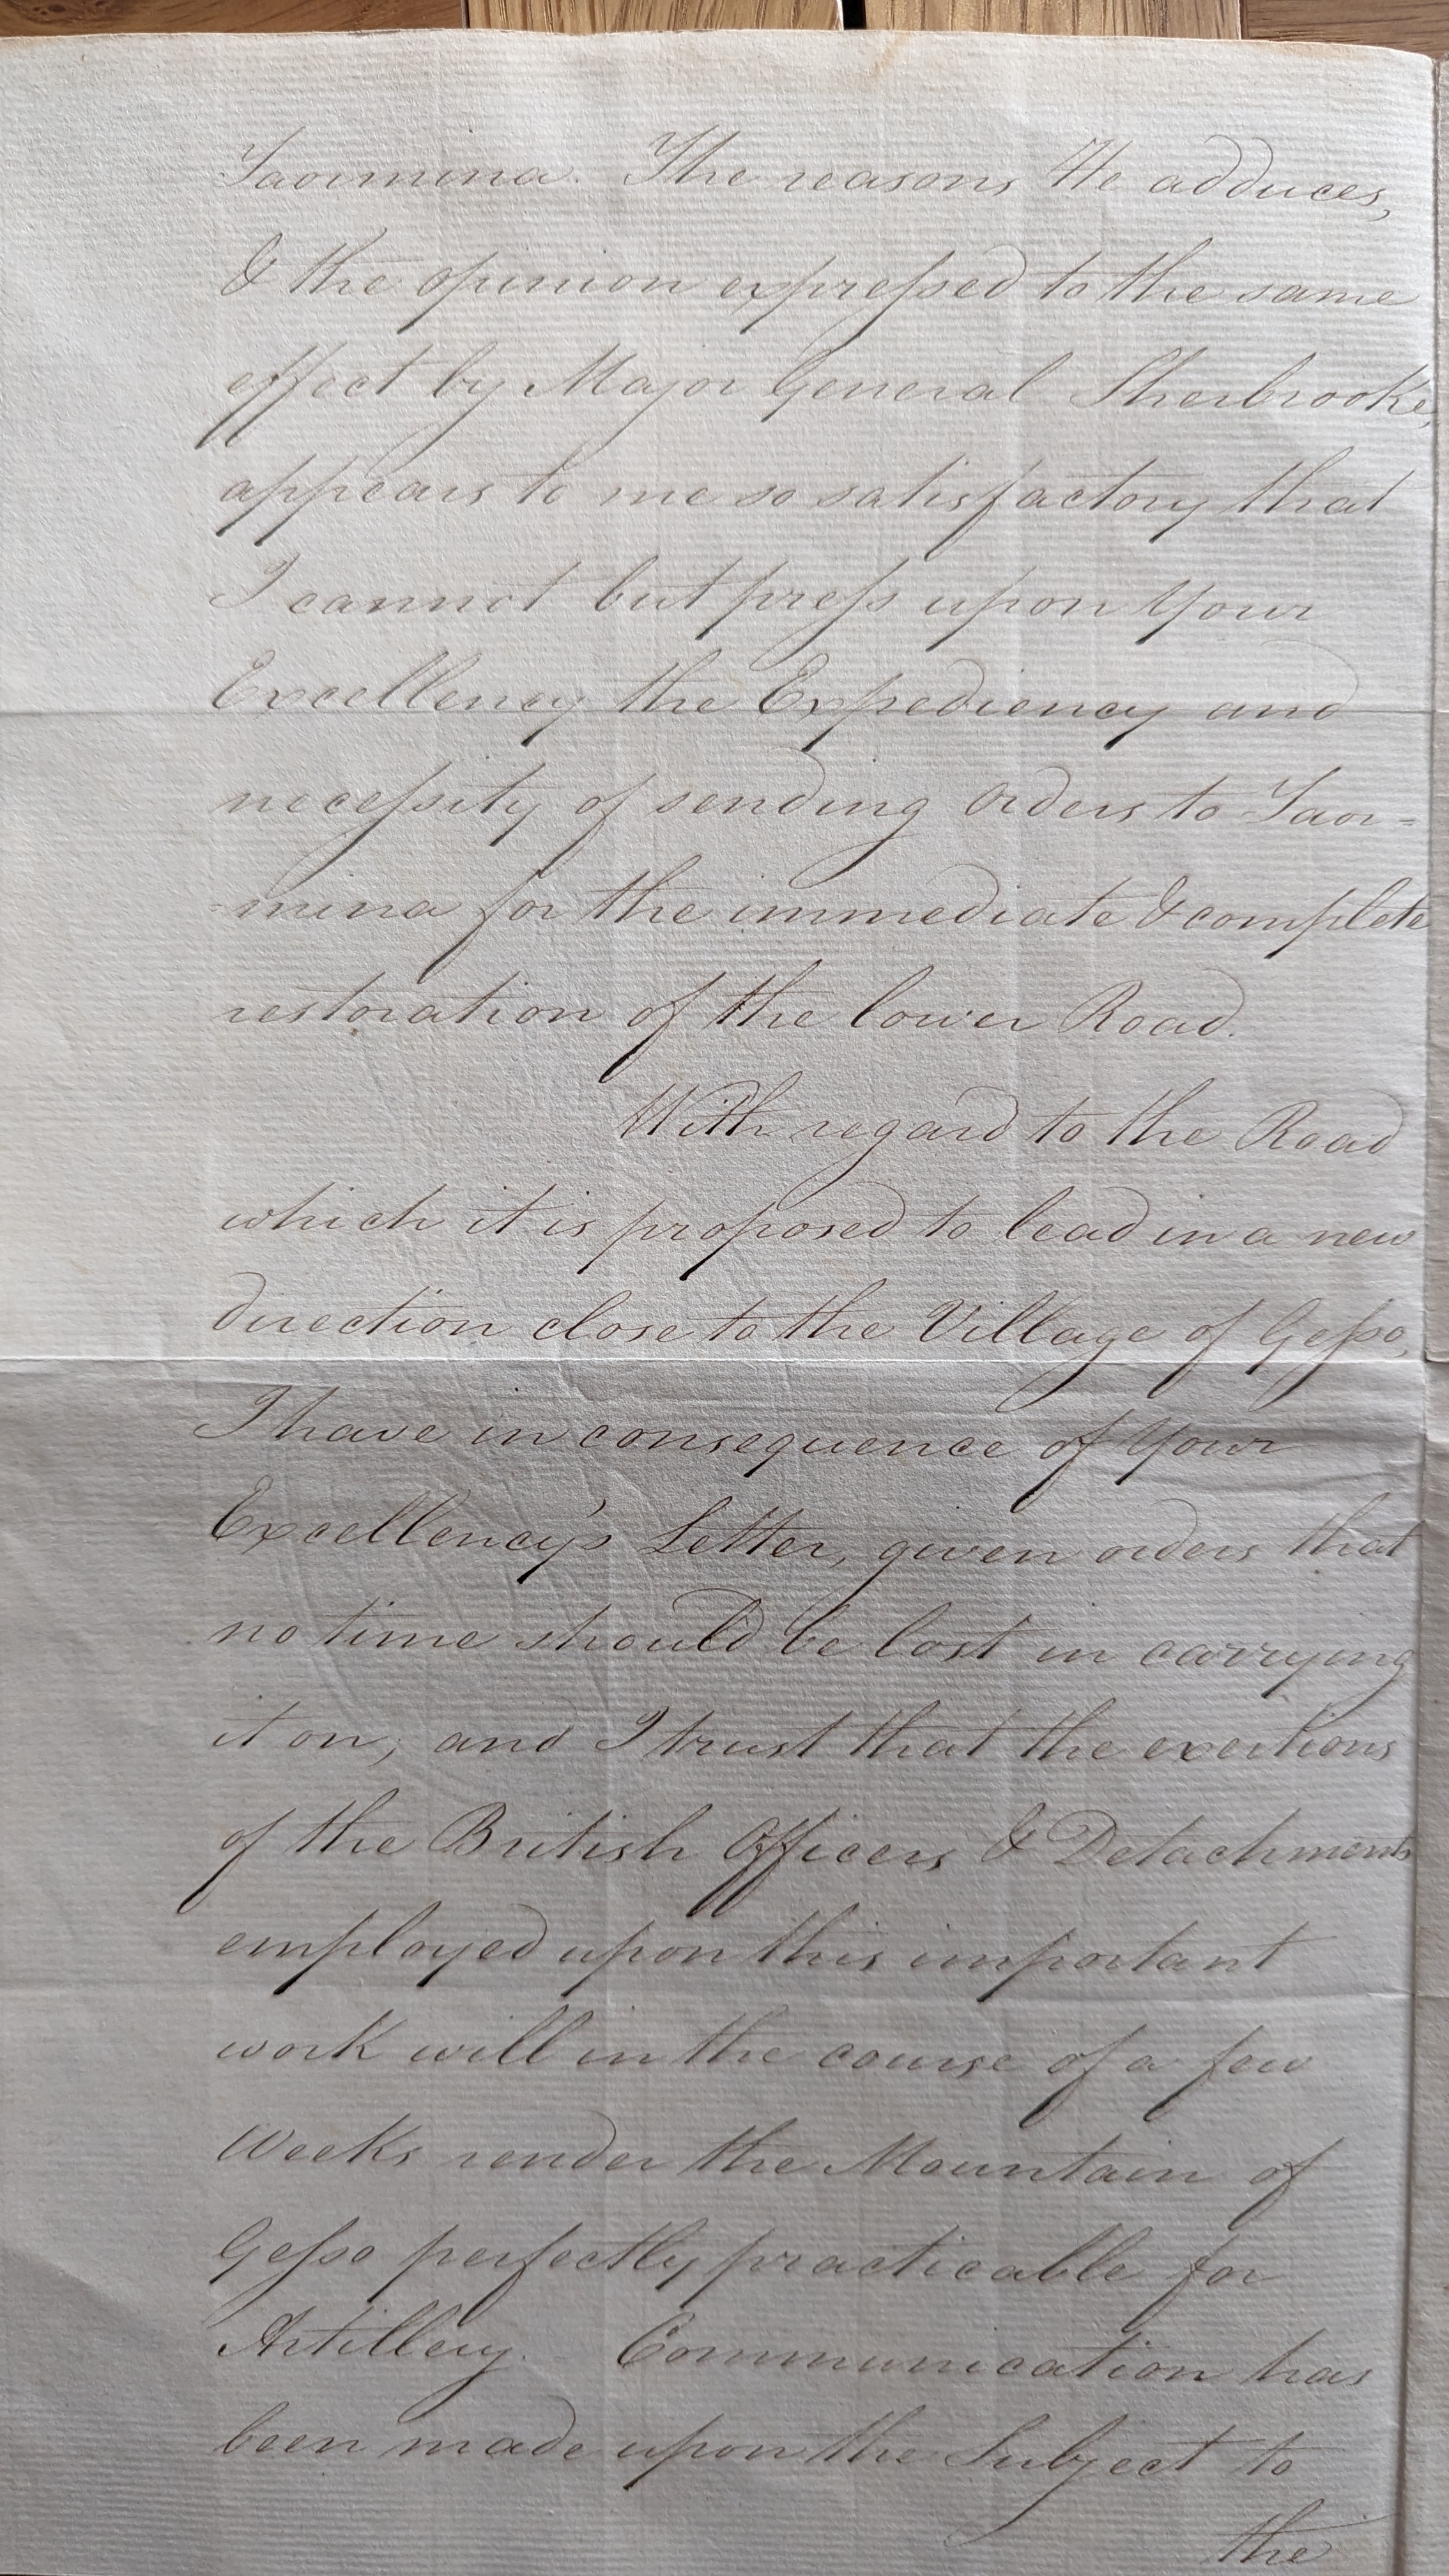 Taormina. The reasons He adduces,
& the opinion expreſsed to the same
effect by Major General Sherbrooke,
appears to me so satisfactory that
I cannot but preſs upon Your
Excellency the Expediency and
neceſsity of sending Orders to Taor=
=mina for the immediate & complete
restoration of the lower Road.
With regard to the Road
which it is proposed to lead in a new
direction close to the Village of Geſso,
I have in consequence of Your
Excellency's Letter, given orders that
no time should be lost in carrying
it on; and I trust that the exertions
of the British Officers & Detachments
employed upon this important
work will in the course of a few
Weeks render the Mountain of
Geſso perfectly practicable for
Artillery. Communication has
been made upon the Subject to
the